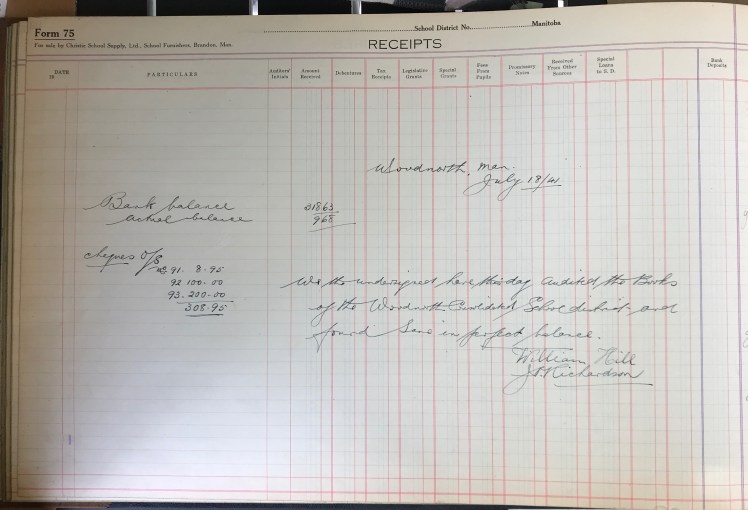 Form 75
School District No. Manitoba
For sale by Christie School Supply, Ltd., School Furnishers, Brandon, Man.
RECEIPTS
DATE
19
PARTICULARS
Auditors' Initials
Amount Received
Debentures
Tax Receipts
Legislative Grants
Special Grants
Fees From Pupils
Promissory Notes
Received From Other Sources
Special Loans to S. D.
Bank Deposits
Woodnorth, Man.
July 18/41
Bank balance 318.63
actual balance 9.68
cheques O/S
No 91. 8.95
92 100.00
93. 200.00
308.95
We the undersigned have this day audited the Books
of the Woodnorth School district and
found Same in perfect balance.
William Hill
Richardson